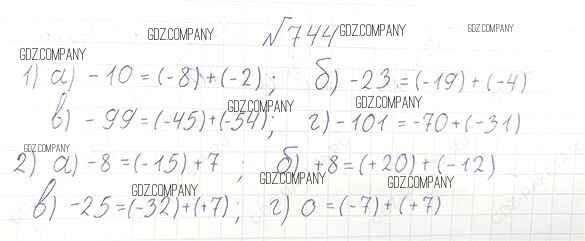 GDZ.COMPANY № 744 GDZ.COMPANY GDZ.COMPANY
GDZ.COMPANY
1) а) -10 = (-8) + (-2); б) -23 = (-19) + (-4)
GDZ.COMPANY GDZ.COMPANY
в) -99 = (-45) + (-54); г) -101 = -70 + (-31)
GDZ.COMPANY
2) а) -8 = (-15) + 7 ; б) +8 = (+20) + (-12)
GDZ.COMPANY GDZ.COMPANY GDZ.COMPANY
в) -25 = (-32) + (+7); г) 0 = (-7) + (+7)